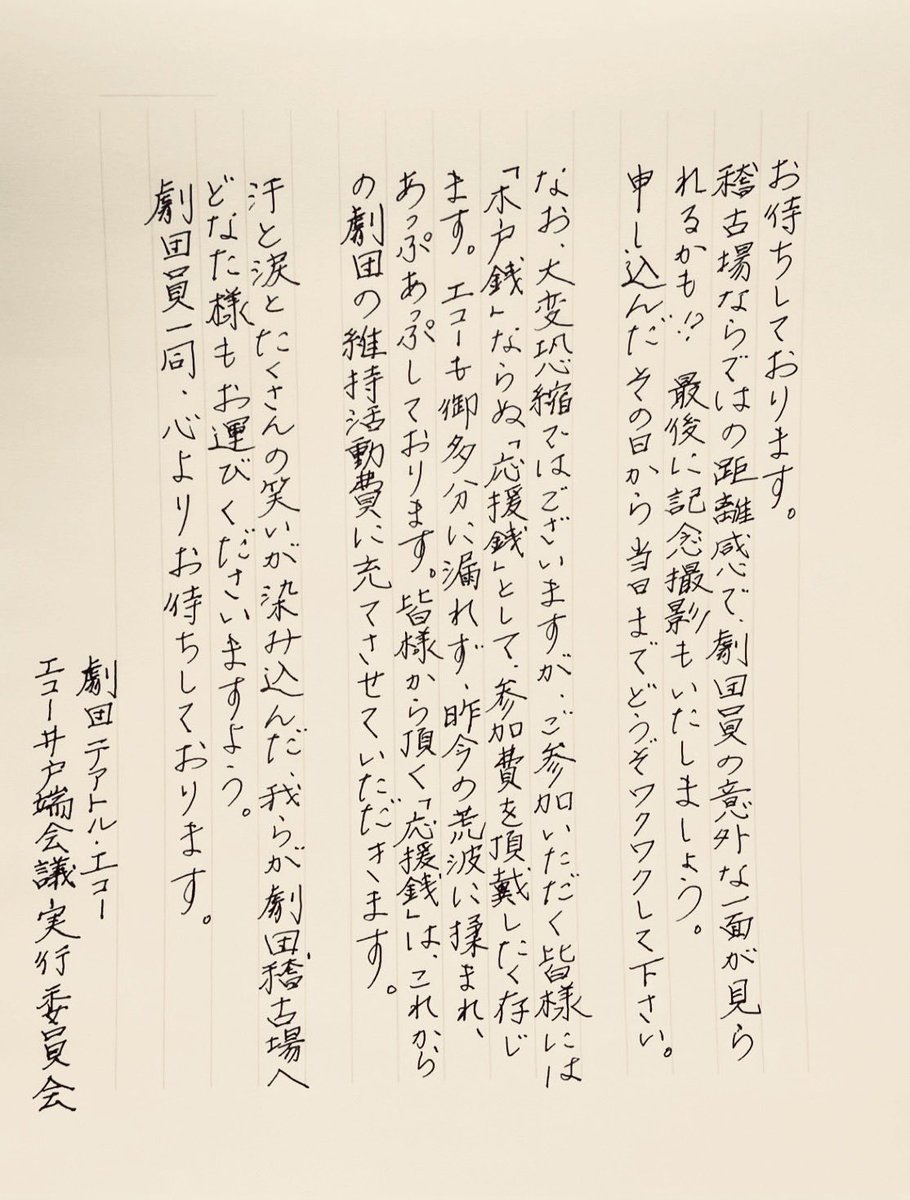 お待ちしております。
稽古場ならではの距離感で、劇団員の意外な一面が見ら
れるかも!? 最後に記念撮影もいたしましょう。
申し込んだその日から当日までどうぞワクワクして下さい。
なお、大変恐縮ではございますが、ご参加いただく皆様には
「木戸銭」ならぬ「応援銭」として、参加費を頂戴したく存じ
ます。エコーも御多分に漏れず、昨今の荒波に揉まれ、
あっぷあっぷしております。皆様から頂く「応援銭」は、これから
の劇団の維持活動費に充てさせていただきます。
汗と涙とたくさんの笑いが染み込んだ、我らが劇団稽古場へ
どなた様もお運びくださいますよう。
劇団員一同、心よりお待ちしております。
劇団テアトル・エコー
エコー井戸端会議実行委員会